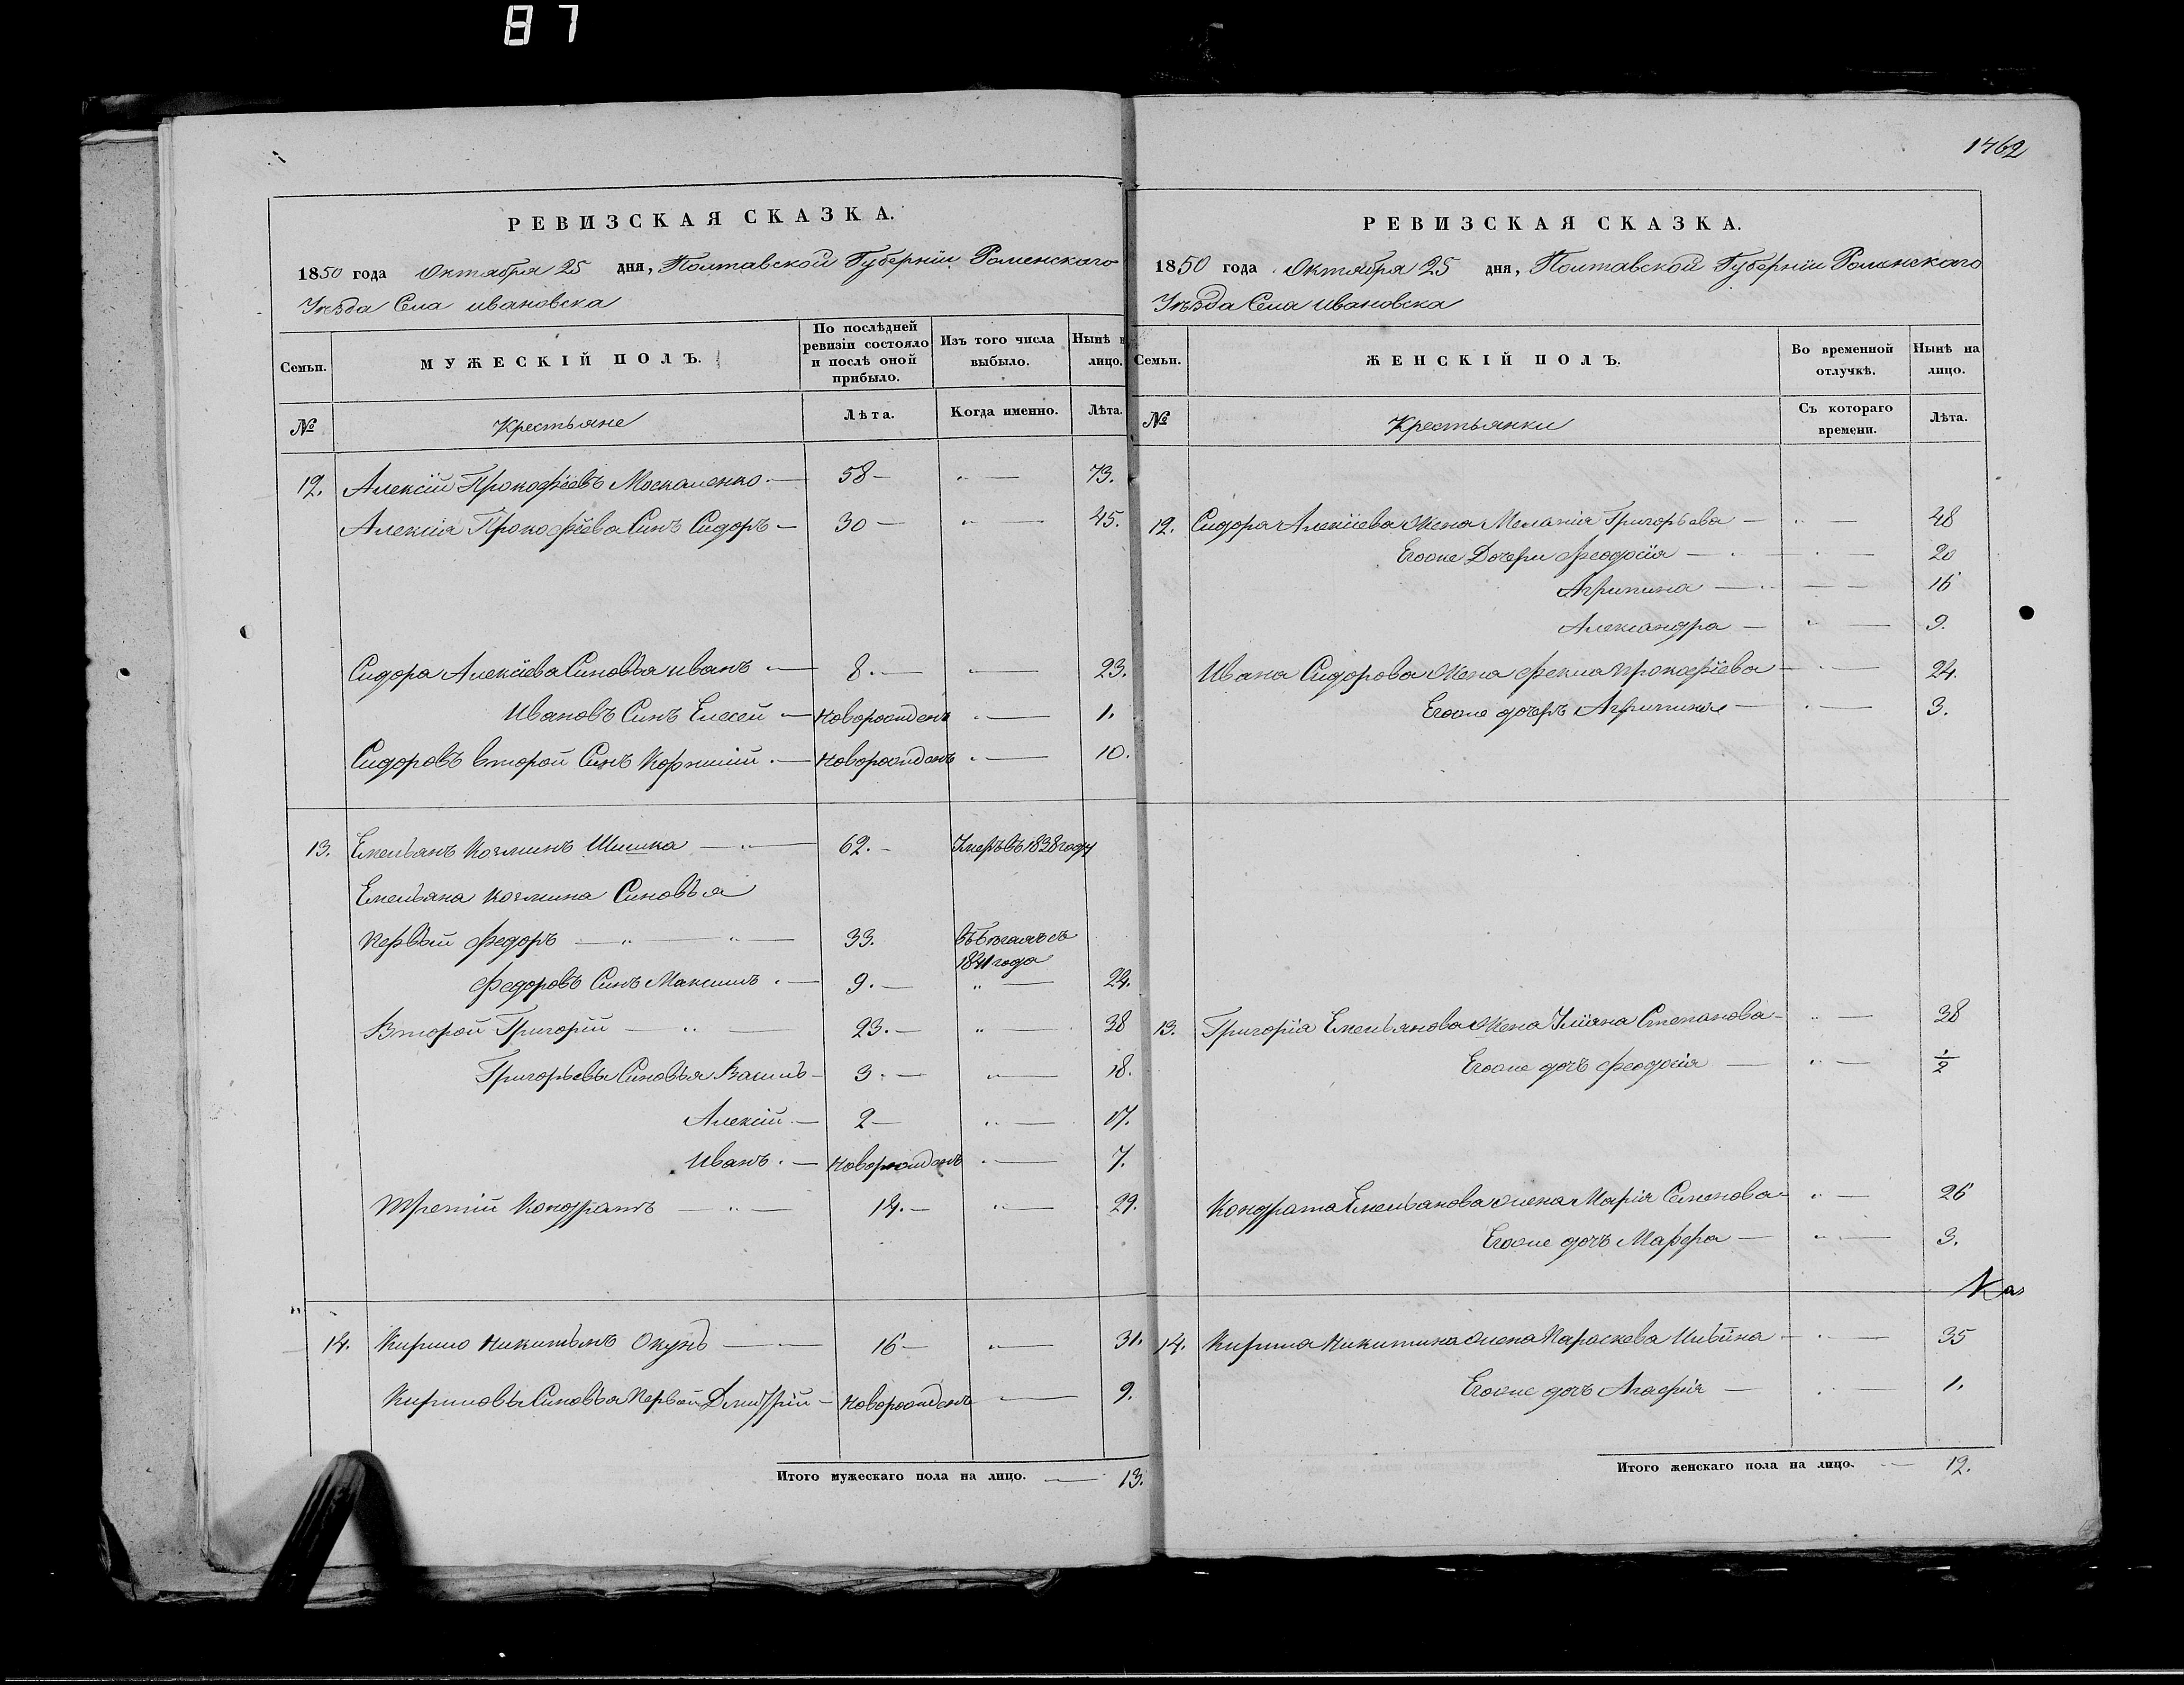 87
1462
РЕВИЗСКАЯ СКАЗКА.
1850 года Октября 25 дня, Полтавской Губерніи Роменскаго
Уѣзда Села ивановска
Семьи.
МУЖЕСКІЙ ПОЛЪ.
По послѣдней ревизіи состояло и послѣ оной прибыло.
Изъ того числа выбыло.
Нынѣ н лицо.
№
Крестьяне
Лѣта.
Когда именно.
Лѣта.
12. Алексій Прокофіевъ Москаленко — 58 — „ — 73.
Алексія Прокофіева Синъ Сидоръ — 30 — „ — 45.
Сидора Алексіева Синовья иванъ — 8. — — 23.
Ивановъ Синъ Елесей — Новорожденъ „ — 1.
Сидоровъ второй Синъ Корнилій. — Новорожденъ „ — 10.
13. Емельянъ Козминъ Шишка — „ — 62. — Умеръ въ 1838 году
Емельяна Козмина Синовья
Первый Федоръ — „ — „ — 33. въ бѣгахъ съ
1841 года
Федоровъ Синъ Максимъ. — 9. — „ — 24.
Второй Григорій — „ — 23. — „ — 38
Григорьевы Синовья Василь — 3. — „ — 18.
Алексій — 2 — „ — 17.
Иванъ. — Новорожденъ „ — 7.
Третій Кондратъ — „ — 14. — „ — 29.
14. Кирило Никитинъ Окунь — — 16 — „ — 31.
Кириловы Синовья Первый Дмитрій — Новорожденъ — 9.
Итого мужескаго пола на лицо. — 13.
РЕВИЗСКАЯ СКАЗКА.
1850 года Октября 25 дня, Полтавской Губерніи Роменскаго
Уѣзда Села Ивановска
Семьи.
ЖЕНСКІЙ ПОЛЪ.
Во временной отлучкѣ.
Нынѣ на лицо.
№
Крестьянки
Съ котораго времени.
Лѣта.
12. Сидора Алексіева Жена Меланія Григорьева — „ — 48
Егоже Дочери Феодосія — „ — 20
Агрипина — „ — 16
Александра — „ — 9.
Ивана Сидорова Жена Фекла Прокофіева — „ — 24.
Егоже дочерь Агрипина — „ — 3.
13. Григорія Емельянова Жена Уліяна Степанова — „ — 38
Егоже дочь Феодосія — „ — 1/2
Кондрата Емельянова жена Марія Семенова — „ — 26
Егоже дочь Марфа — „ — 3.
14. Кирила Никитина жена Параскева Ильина — „ — 35
Егоже дочь Агафія — „ — 1.
Итого женскаго пола на лицо. — 12.